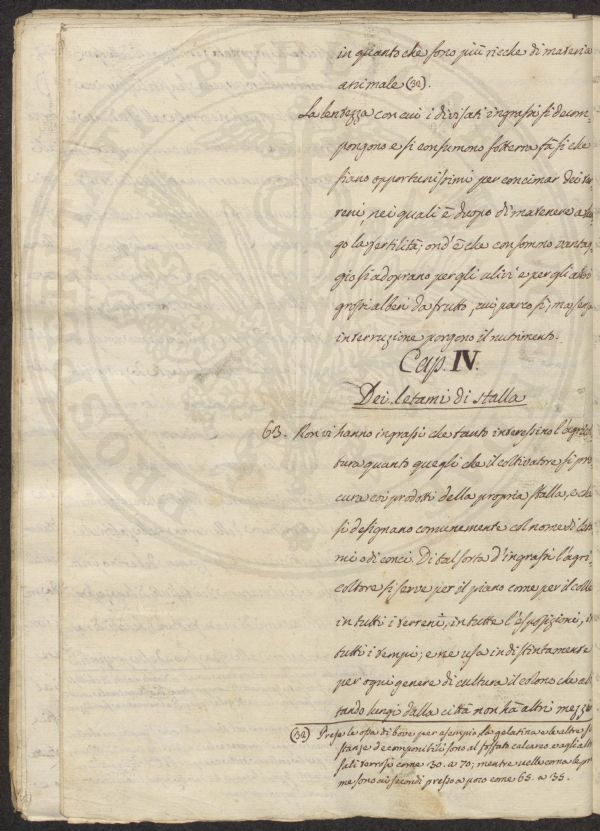 in quanto che sono più ricche di materia
animale (32).
La lentezza con cui i divisati ingrassi si decom-
pongono e si consumono sotterra fà sì che
siano opportunissimi per concimar dei ter
reni, nei quali è duopo di mantenere a lun
go la fertilità; ond'è che con sommo vantag
gio si adoprano per gli ulivi e per gli altri
grossi alberi da frutto, cui parco sì, ma senza
interruzione porgono il nutrimento.
Cap. IV.
Dei letami di stalla
63. Non vi hanno ingrassi che tanto interessino l'agricol
tura quanto quegli che il coltivatore si pro
cura coi prodotti della propria stalla, e che
si designano comunemente col nome di leta
mi o di conci. Di tal sorta d'ingrassi l'agri
coltore si serve per il piano come per il colle
in tutti i terreni, in tutte l'esposizioni, in
tutti i tempi; e ne usa indistintamente
per ogni genere di cultura il colono che abi
tando lungi dalla città non hà altri mezzi
(32) Prese le ossa di bove per esempio, la gelatina e le altre so
stanze decomponibili sono al fosfato calcareo e agli altri
sali terrosi come 30. a 70; mentre nelle corna le pri
me sono ai secondi presso a poco come 65. a 35.